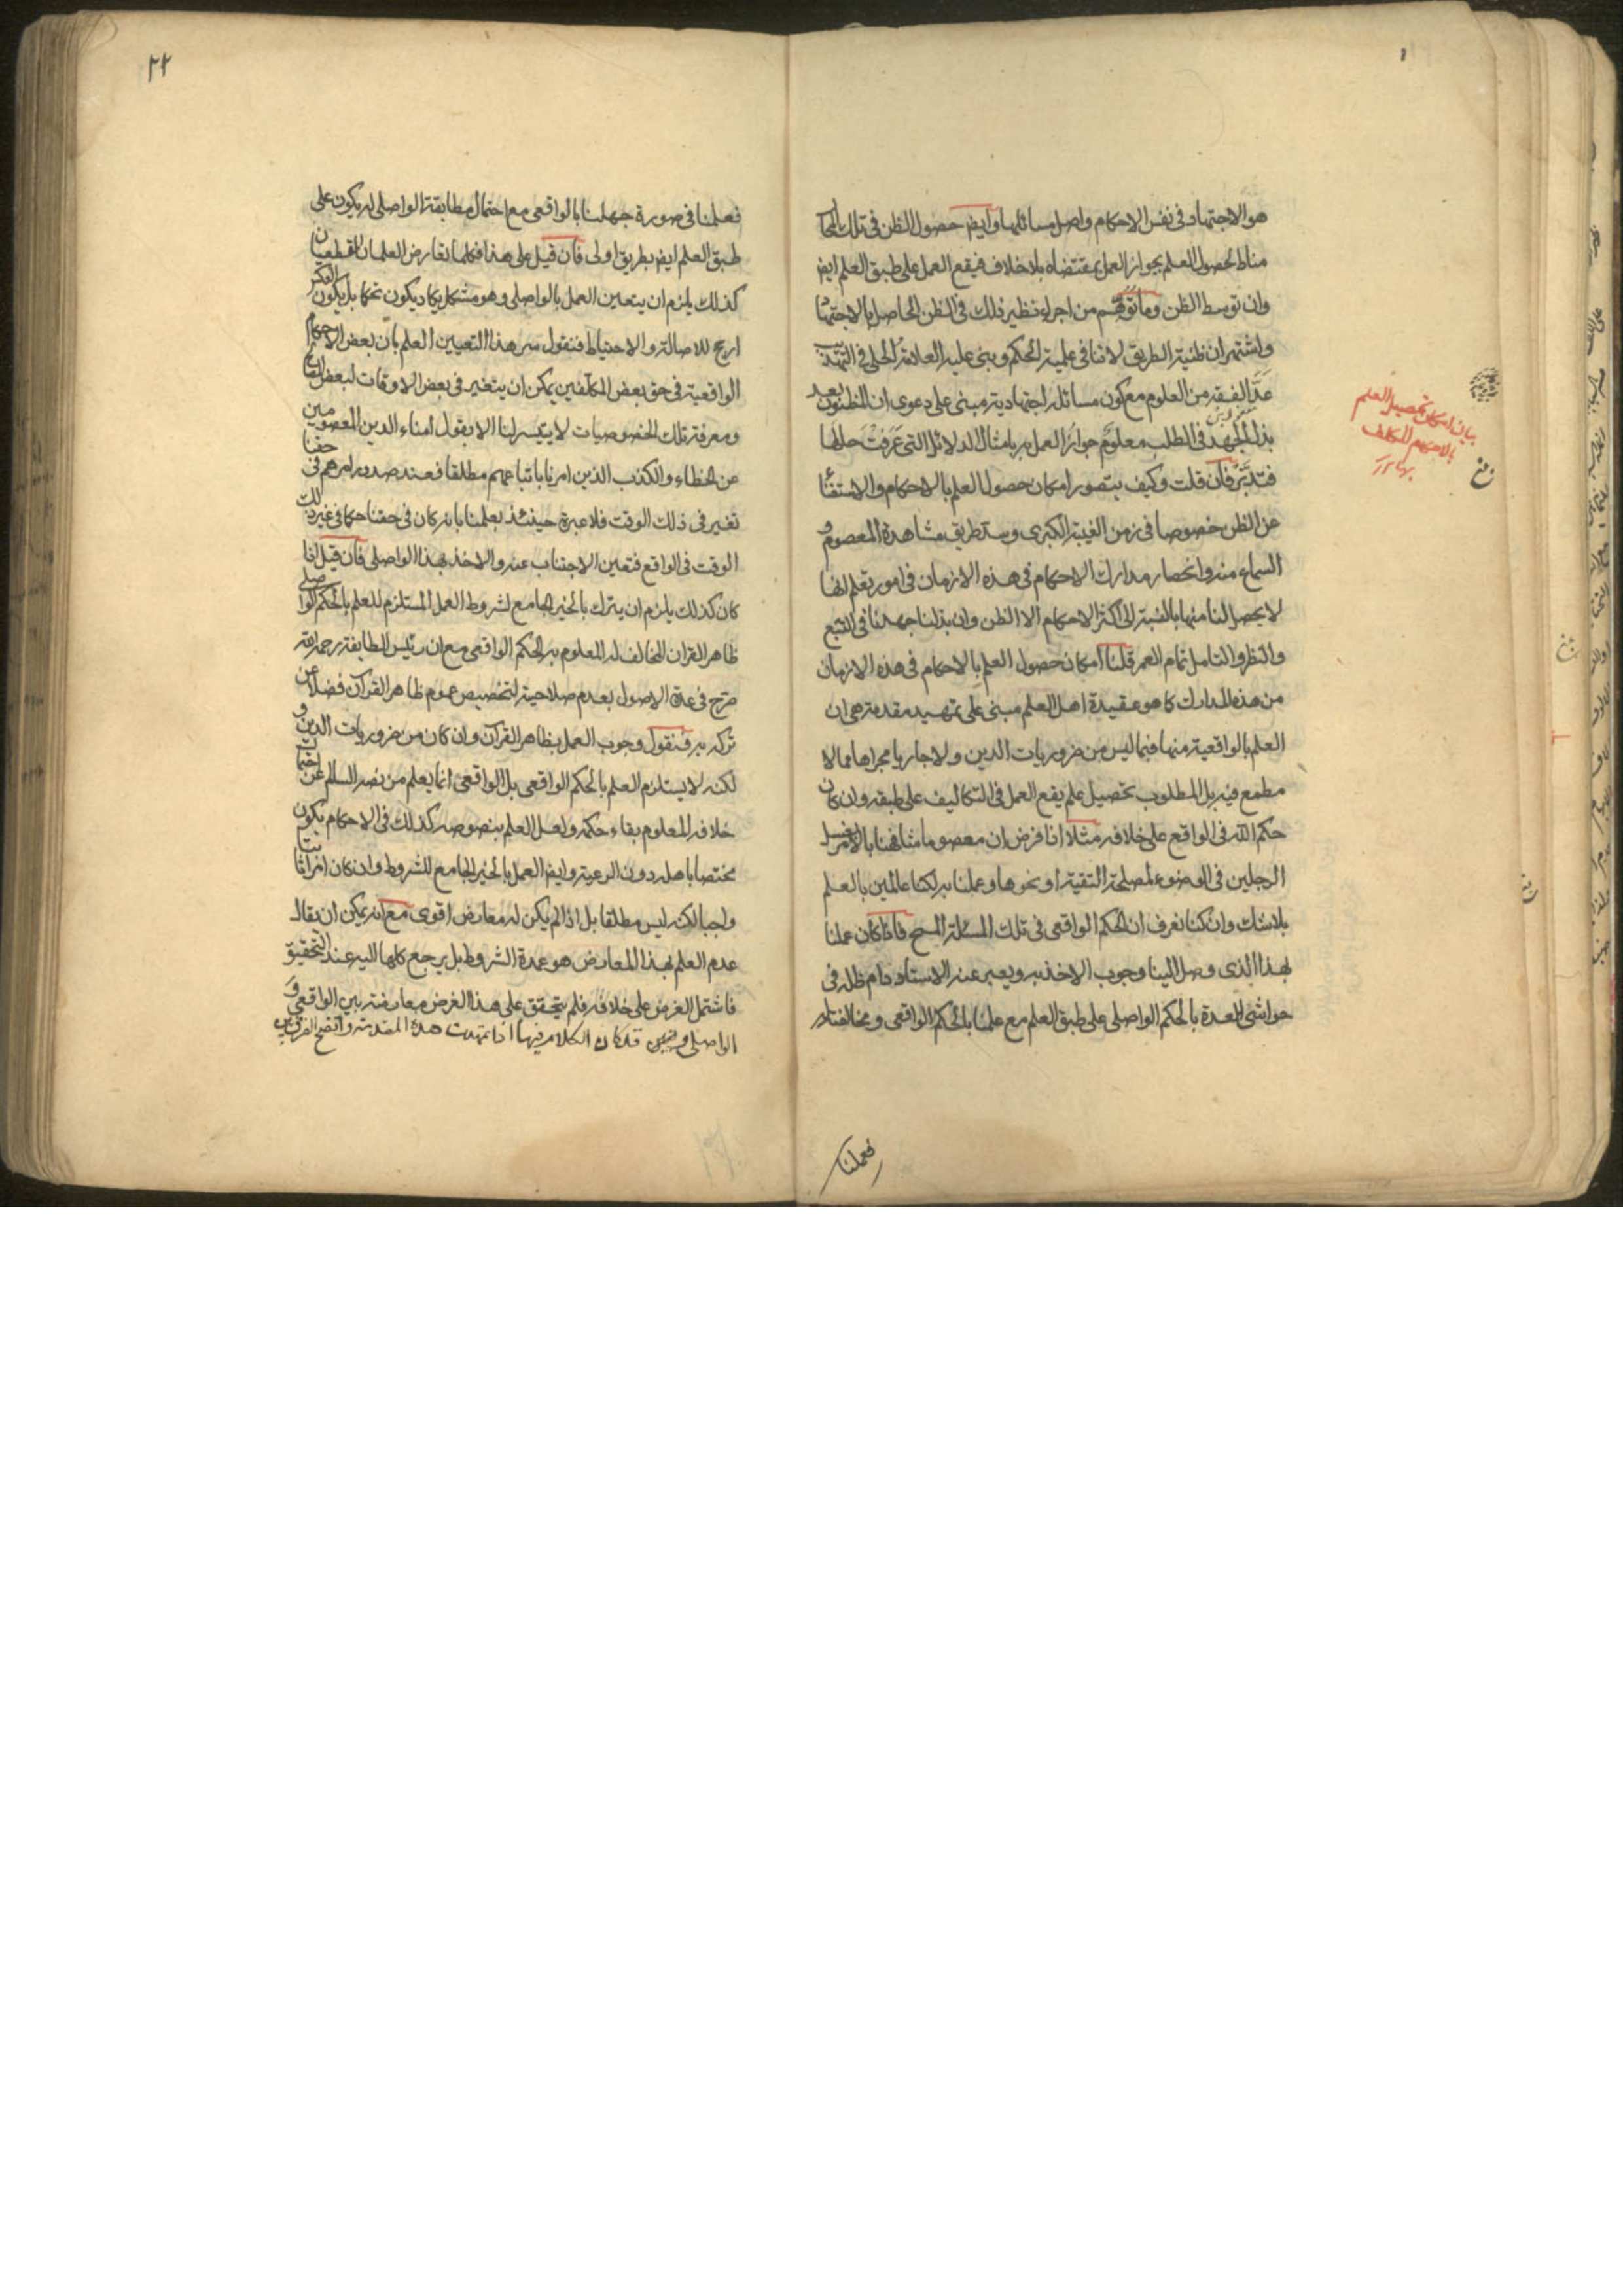 هو الاجتهاد فى نفس الاحكام واصل مسائلها وايض حصول الظن فى تلك
مناط لحصول العلم بجواز العمل بمقتضاه بلا خلاف فيقع العمل على طبق العلم ايض
وان توسط الظن وما توهم من اجراء نظير ذلك فى الظن الحاصل بالاجتهاد
واشتهر ان ظنية الطريق لا تنافى علمية الحكم وبنى عليه العلامة الحلى فى التهذيب
عد الفقه من العلوم مع كون مسائله اجتهادية مبنى على دعوى ان المظنون بعد
بذل الجهد فى الطلب معلوم جواز العمل به بامثال الدلائل التى عرفت حالها
فتدبر فان قلت وكيف يتصور امكان حصول العلم بالاحكام والاستغناء
عن الظن خصوصا فى زمن الغيبة الكبرى وسد طريق مشاهدة المعصوم و
السماع منه وانحصار مدارك الاحكام فى هذه الازمان فى امور تعلم انها
لا يحصل لنا منها بالنسبة الى اكثر الاحكام الا الظن وان بذلنا جهدنا فى التتبع
والنظر والتامل تمام العمر قلنا امكان حصول العلم بالاحكام فى هذه الازمان
من هذه المدارك كما هو عقيدة اهل العلم مبنى على تمهيد مقدمة هى ان
العلم بالواقعية منها فيما ليس من ضروريات الدين ولا جاريا مجراها مما لا
مطمع فيه بل المطلوب تحصيل علم يقع العمل فى التكاليف على طبقه وان كان
حكم الله فى الواقع على خلافه مثلا اذا فرض ان معصوما شافهنا بالامر بغسل
الرجلين فى الوضوء لمصلحة التقية او نحوها وعملنا به لكنا عالمين بالعلم
بلا شك وان كنا نعرف ان الحكم الواقعى فى تلك المسئلة المسح فاذا كان عملنا
بهذا الذى وصل الينا وجوب الاخذ به ويعبر عنه الاستاد دام ظله فى
حواشى العدة بالحكم الواصلى على طبق العلم مع علمنا بالحكم الواقعى ومخالفتاه
فعملنا
بيان امكان تحصيل العلم
بالاحكام للمكلف
٢٢
فعملنا فى صورة جهلنا بالواقعى مع احتمال مطابقة الواصلى له يكون على
طبق العلم ايض بطريق اولى فان قيل على هذا فكلما تعارض العلمان القطعيان
كذلك يلزم ان يتعين العمل بالواصلى وهو مشكل يكاد يكون تحكما بل يكون العكس
ارجح للاصالة والاحتياط فنقول سر هذا التعيين العلم بان بعض الاحكام
الواقعية فى حق بعض المكلفين يمكن ان يتغير فى بعض الاوقات لبعض
ومعرفة تلك الخصوصيات لا يتيسر لنا الا بقول امناء الدين المعصومين
عن الخطاء والكذب الذين امرنا باتباعهم مطلقا فعند صدور امرهم فى حقنا
تغير فى ذلك الوقت فلا عبرة حينئذ بعلمنا بانه كان فى حقنا حكما فى غير ذلك
الوقت فى الواقع فتعين الاجتناب عنه والاخذ بهذا الواصلى فان قيل اذا
كان كذلك يلزم ان يترك بالخبر الجامع لشروط العمل المستلزم للعلم بالحكم الواصلى
ظاهر القران المخالف له المعلوم به الحكم الواقعى مع ان رئيس الطايفة رحمه الله
صرح فى عدة الاصول بعدم صلاحيته لتخصيص عموم ظاهر القران فضلا عن
تركه به فنقول وجوب العمل بظاهر القران وان كان من ضروريات الدين و
لكنه لا يستلزم العلم بالحكم الواقعى بل الواقعى انما يعلم من نصه السالم عن احتمال
خلافه المعلوم بقاء حكمه ولعل العلم بنصوصه كذلك فى الاحكام يكون
مختصا باهله دون الرعية وايض العمل بالخبر الجامع للشروط وان كان امرا ثابتا
واجبا لكنه ليس مطلقا بل اذا لم يكن له معارض اقوى مع انه يمكن ان يقال
عدم العلم بهذا المعارض هو عمدة الشروط بل يرجع كلها اليه عند التحقيق
فاشتمل الغرض على خلافه فلم يتحقق على هذا الغرض معارضة بين الواقعى و
الواصلى قد كان الكلام فيها اذا تمهدت هذه المقدمة واتضح الفرق بين